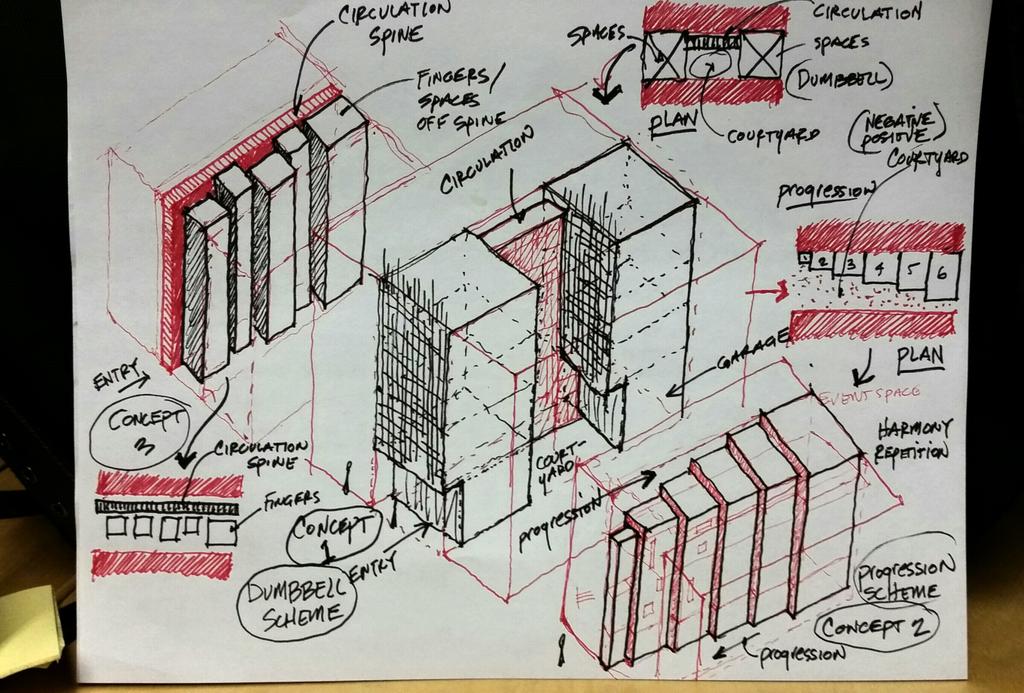 CIRCULATION
SPINE
FINGERS/
SPACES
OFF SPINE
SPACES
CIRCULATION
SPACES
(DUMBBELL)
PLAN
COURTYARD
(NEGATIVE
POSITIVE)
COURTYARD
PROGRESSION
1 2 3 4 5 6
PLAN
CIRCULATION
GARAGE
COURT-
YARD
ENTRY
CONCEPT
3
CIRCULATION
SPINE
FINGERS
CONCEPT
1
DUMBBELL
SCHEME
ENTRY
EVENT SPACE
HARMONY
REPETITION
PROGRESSION
PROGRESSION
SCHEME
CONCEPT 2
PROGRESSION